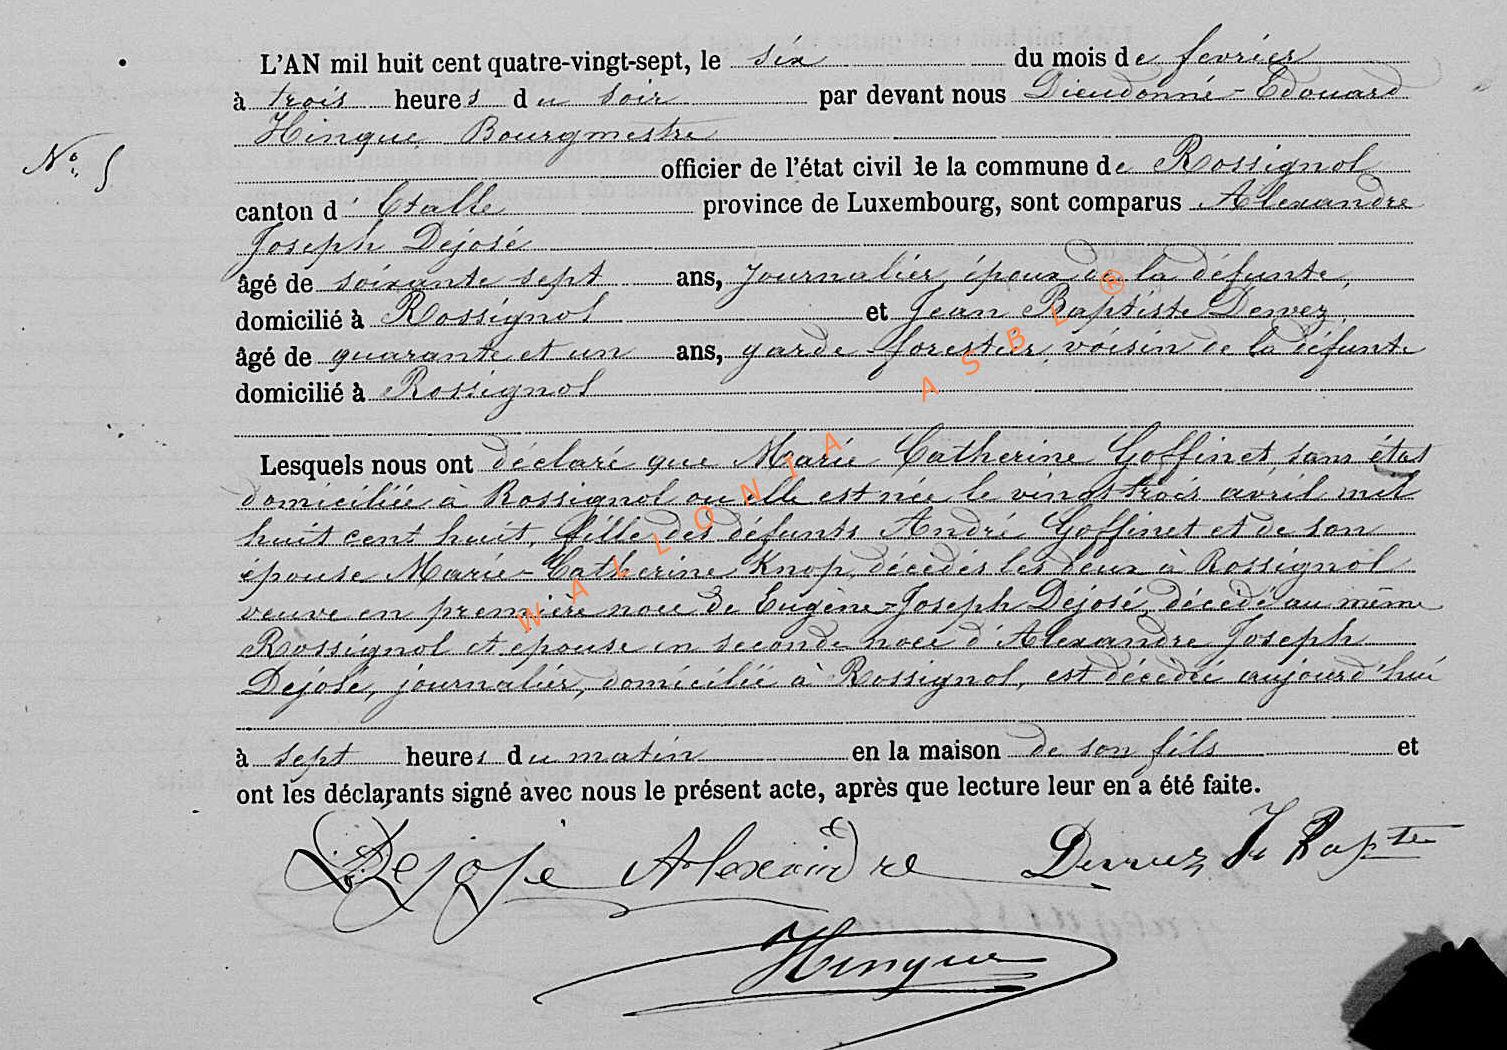 L'AN mil huit cent quatre-vingt-sept, le six du mois de fevrier
à trois heures du soir par devant nous Dieudonné-Edouard
Hinque Bourgmestre
N° 5
officier de l'état civil de la commune de Rossignol
canton d'Etalle province de Luxembourg, sont comparus Alexandre
Joseph Dejosé
âgé de soixante sept ans, journalier, époux de la défunte,
domicilié à Rossignol et Jean Baptiste Dewez,
âgé de quarante et un ans, garde-forestier, voisin de la défunte
domicilié à Rossignol
Lesquels nous ont déclaré que Marie Catherine Goffinet, sans état
domiciliée à Rossignol ou elle est née le vingt trois avril mil
huit cent huit, fille des défunts André Goffinet et de son
épouse Marie-Catherine Knop, décédés les deux à Rossignol
veuve en première noce de Eugène-Joseph Dejosé, décédé au même
Rossignol et epouse en seconde noce d'Alexandre Joseph
Dejosé, journalier, domicilié à Rossignol, est décédée aujourd'hui
à sept heures du matin en la maison de son fils et
ont les déclarants signé avec nous le présent acte, après que lecture leur en a été faite.
Dejosé Alexandre Dewez J Bapte
Hinque
WALLONIA ASBL ®